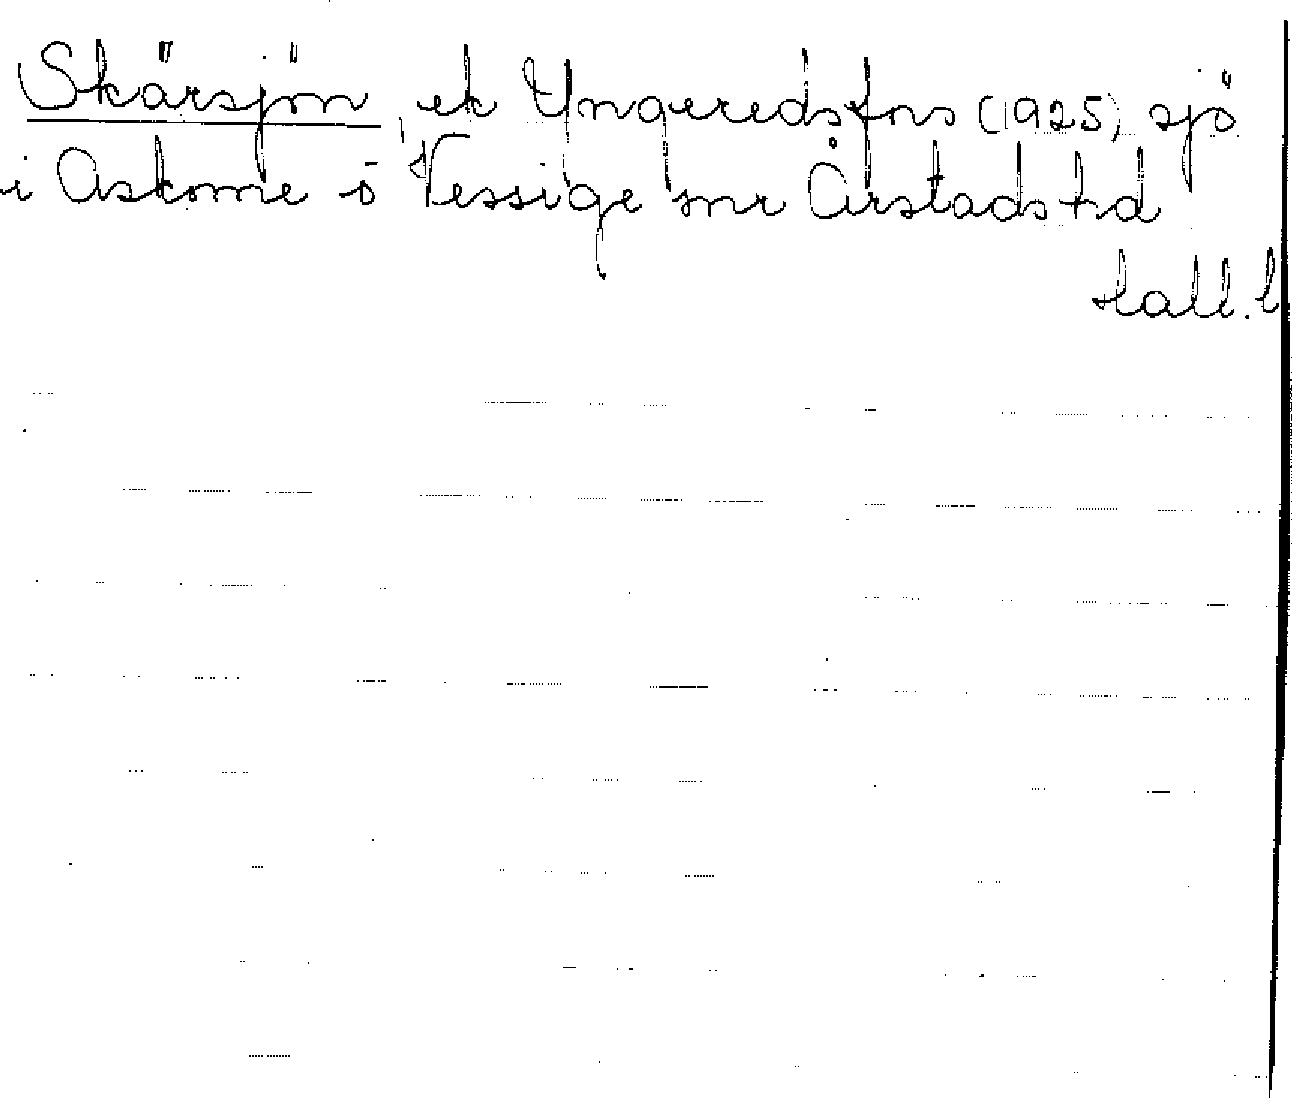 Skärsjön ek Yngeredsfors (1925) sjö
i Askome o Vessige snr Årstads hd
Hall. l